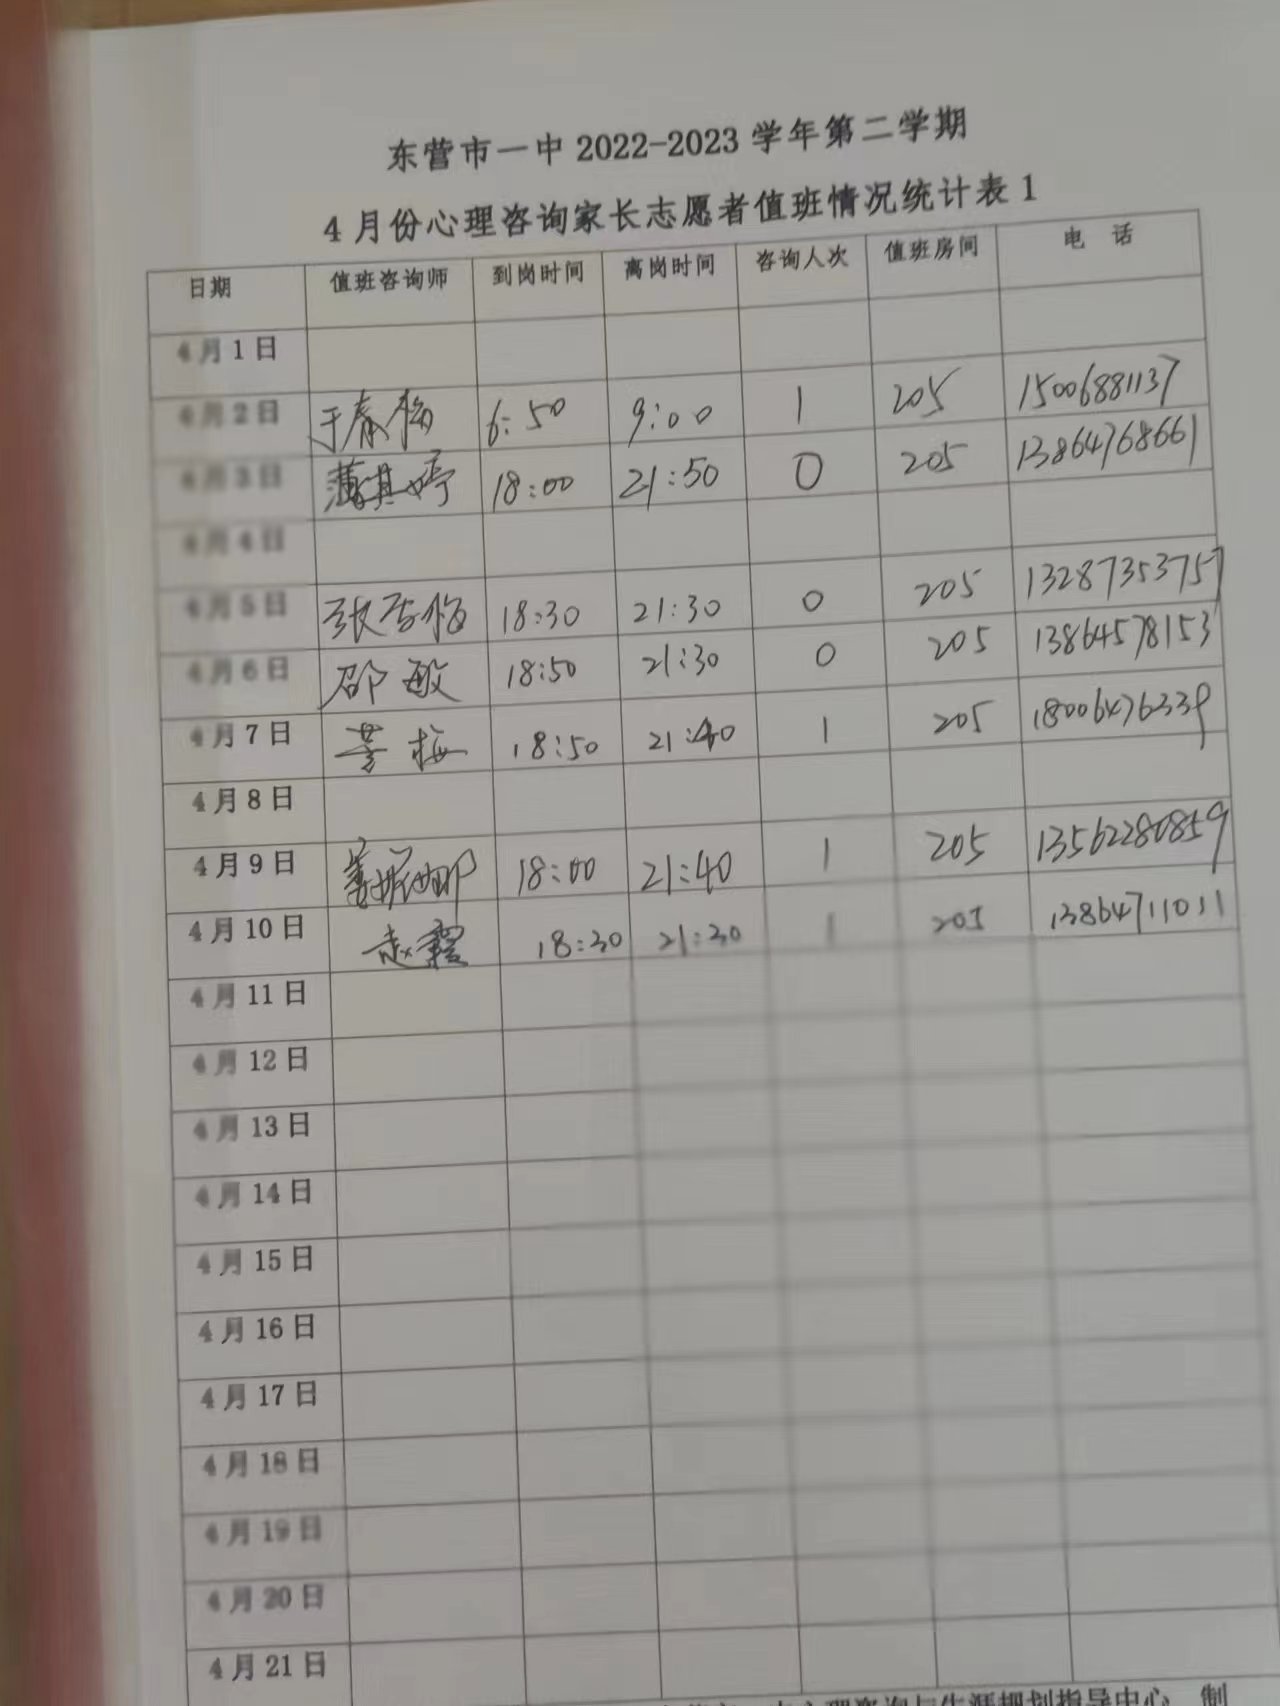 东营市一中 2022-2023 学年第二学期
4 月份心理咨询家长志愿者值班情况统计表 1
日期 值班咨询师 到岗时间 离岗时间 咨询人次 值班房间 电 话
4月1日
4月2日 于春梅 6:50 9:00 1 205 15006881137
4月3日 蒲其婷 18:00 21:50 0 205 13864768661
4月4日
4月5日 张 梅 18:30 21:30 0 205 13287353757
4月6日 邵敏 18:50 21:30 0 205 13864578153
4月7日 梅 18:50 21:40 1 205 18006476339
4月8日
4月9日 姜妮娜 18:00 21:40 1 205 13562280859
4月10日 赵霞 18:30 21:30 1 205 13864711011
4月11日
4月12日
4月13日
4月14日
4月15日
4月16日
4月17日
4月18日
4月19日
4月20日
4月21日
心理咨询与生涯规划指导中心 制